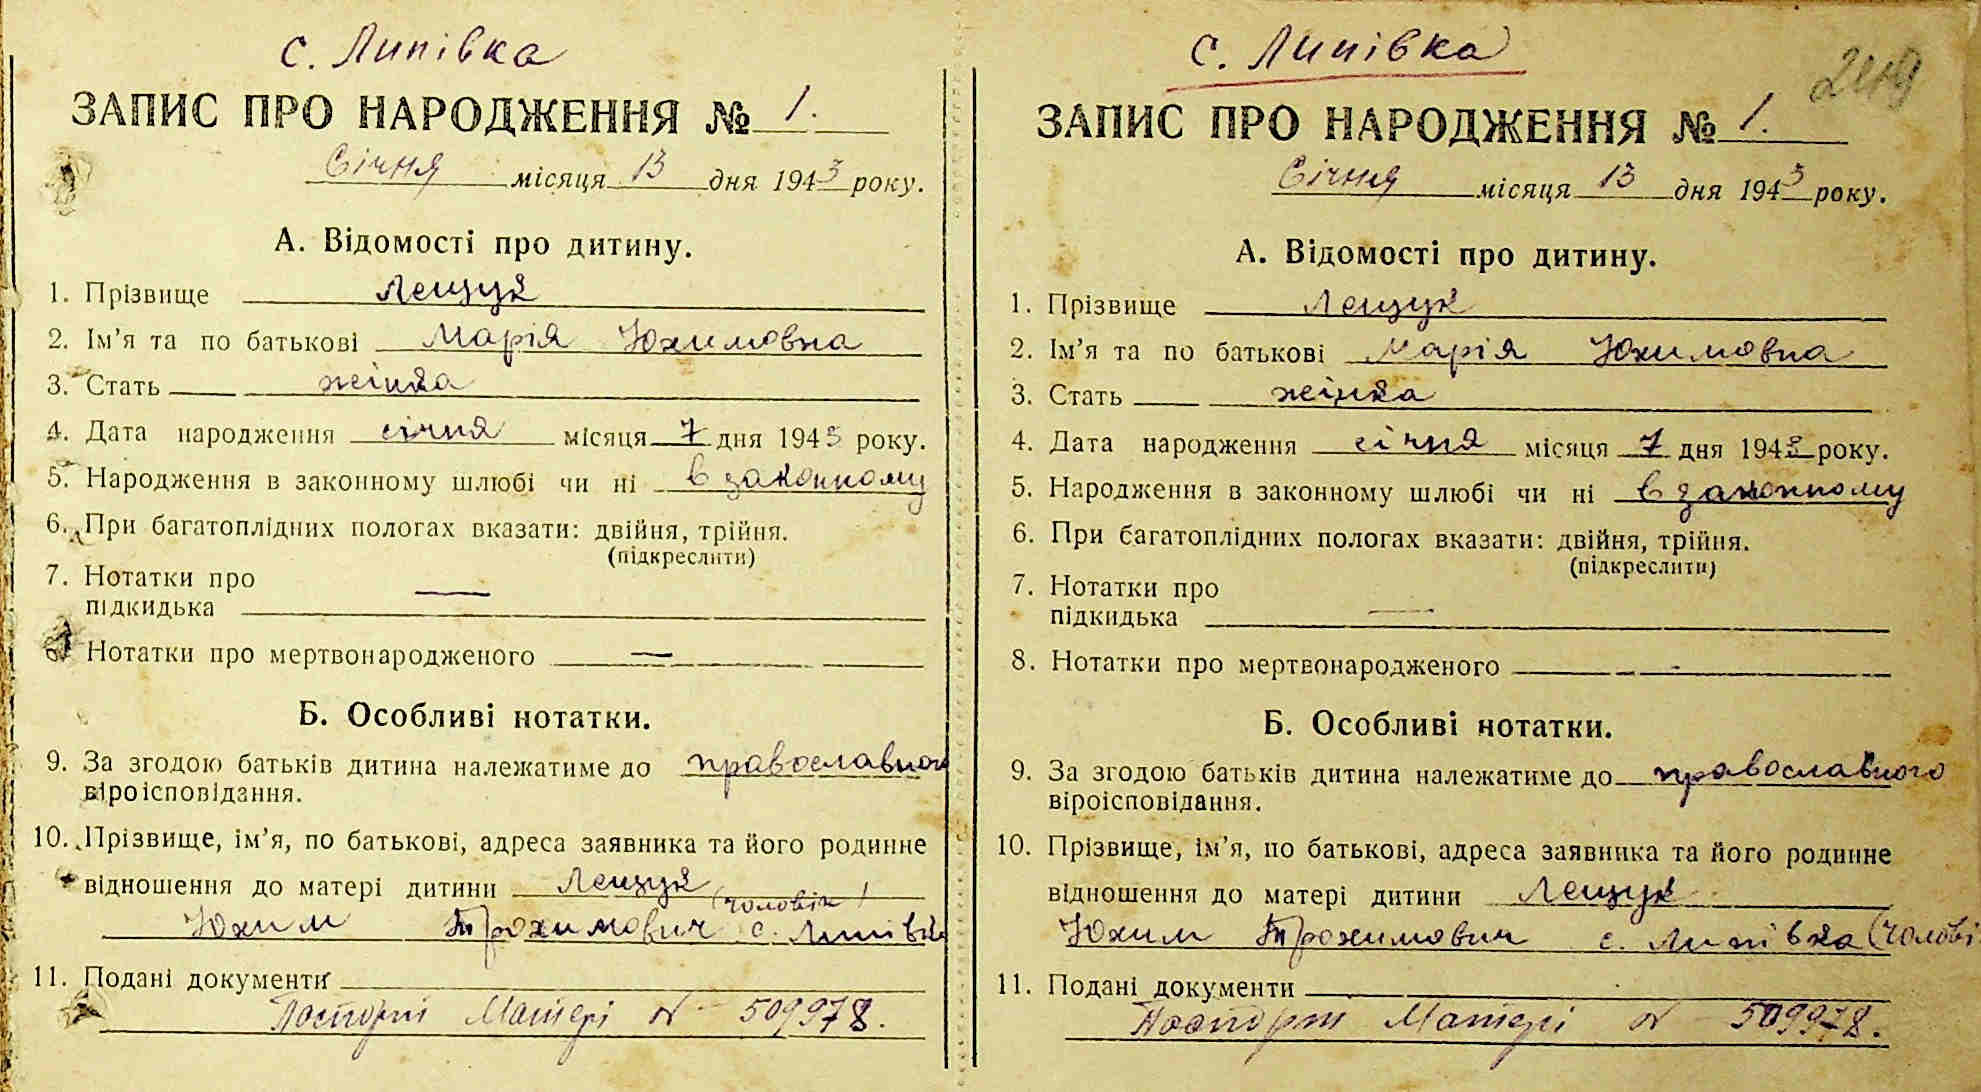 с. Липівка
ЗАПИС ПРО НАРОДЖЕННЯ № 1.
Січня місяця 13 дня 1943 року.
А. Відомості про дитину.
1. Прізвище Лещук
2. Ім’я та по батькові Марія Юхимовна
3. Стать жінка
4. Дата народження січня місяця 7 дня 1943 року.
5. Народження в законному шлюбі чи ні в законному
6. При багатоплідних пологах вказати: двійня, трійня.
(підкреслити)
7. Нотатки про —
підкидька
Нотатки про мертвонародженого —
Б. Особливі нотатки.
9. За згодою батьків дитина належатиме до православного
віроісповідання.
10. Прізвище, ім’я, по батькові, адреса заявника та його родинне
відношення до матері дитини Лещук
(чоловік)
Юхим Трохимович с. Липівка
11. Подані документи
Паспорт Матері № 509978.
с. Липівка
249
ЗАПИС ПРО НАРОДЖЕННЯ № 1.
Січня місяця 13 дня 1943 року.
А. Відомості про дитину.
1. Прізвище Лещук
2. Ім’я та по батькові Марія Юхимовна
3. Стать жінка
4. Дата народження січня місяця 7 дня 1943 року.
5. Народження в законному шлюбі чи ні в законному
6. При багатоплідних пологах вказати: двійня, трійня.
(підкреслити)
7. Нотатки про
підкидька —
8. Нотатки про мертвонародженого -
Б. Особливі нотатки.
9. За згодою батьків дитина належатиме до православного
віроісповідання.
10. Прізвище, ім’я, по батькові, адреса заявника та його родинне
відношення до матері дитини Лещук
Юхим Трохимович с. Липівка (чолові
11. Подані документи
Паспорт Матері № 509978.